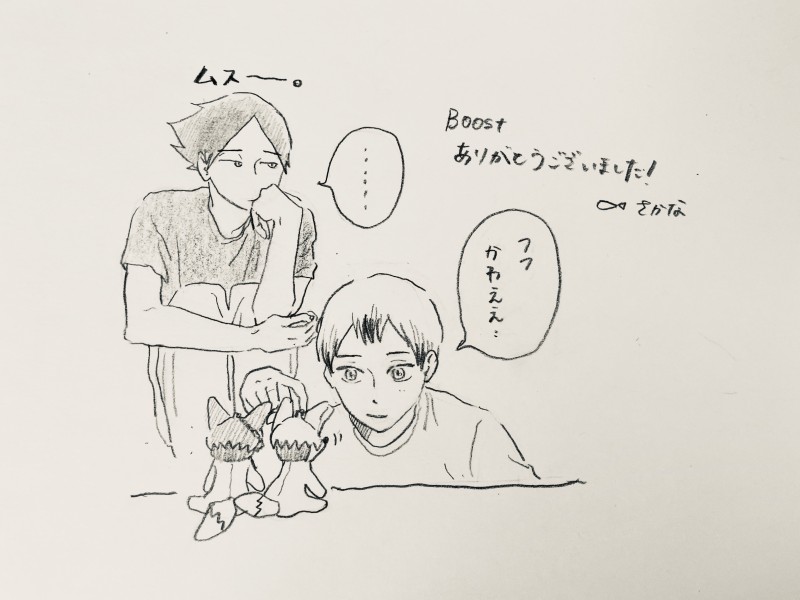 ムスー。
……
Boost
ありがとうございました!
さかな
フフ
かわええ…